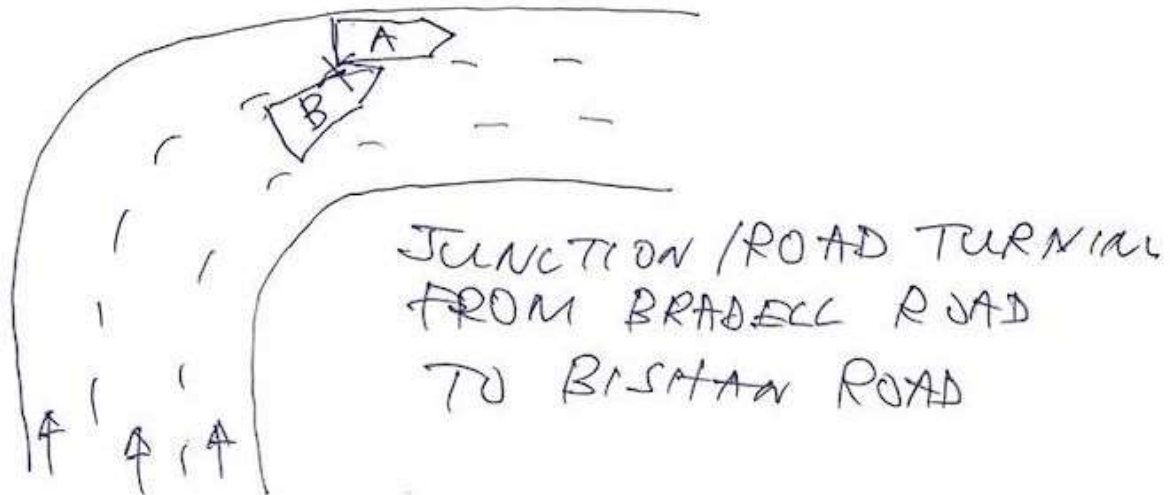 A
B
JUNCTION /ROAD TURNING
FROM BRADELL ROAD
TO BISHAN ROAD